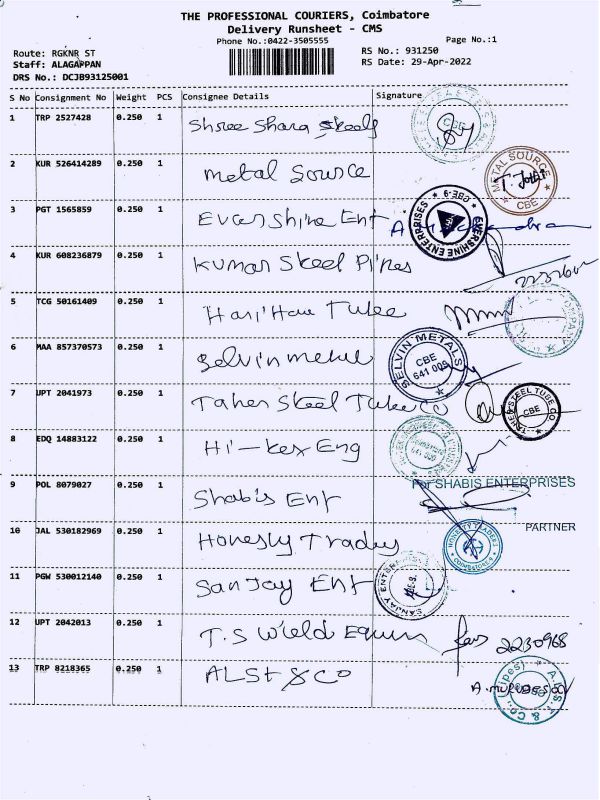 THE PROFESSIONAL COURIERS, Coimbatore
Delivery Runsheet - CMS
Phone No.:0422-3505555
Page No.:1
Route: RGKNR ST
RS No.: 931250
Staff: ALAGAPPAN
RS Date: 29-Apr-2022
DRS No.: DCJB93125001
S No Consignment No Weight PCS Consignee Details Signature
1 TRP 2527428 0.250 1 Shree Shara Steels CBE
2 KUR 526414289 0.250 1 Metal Source METAL SOURCE CBE
3 PGT 1565859 0.250 1 Evershine Ent EVERSHINE ENTERPRISES CBE-9
4 KUR 608236879 0.250 1 Kumar Steel Pipes
5 TCG 50161409 0.250 1 Hari Har Tube COMPANY
6 MAA 857370573 0.250 1 Selvin metal SELVIN METALS CBE 641 009
7 UPT 2041973 0.250 1 Taher Steel Tube Co TAHER STEEL TUBE CO CBE
8 EDQ 14883122 0.250 1 Hi-kex Eng
9 POL 8079027 0.250 1 Shabis Ent For SHABIS ENTERPRISES
PARTNER
10 JAL 530182969 0.250 1 Honesty Traders HONESTY TRADERS COIMBATORE-9
11 PGW 530012140 0.250 1 Sanjay Ent SANJAY ENTERPRISES
12 UPT 2042013 0.250 1 T.S Wield Equim 2230968
13 TRP 8218365 0.250 1 ALSt & Co A.MURUGESAN & Co., (Pipes)